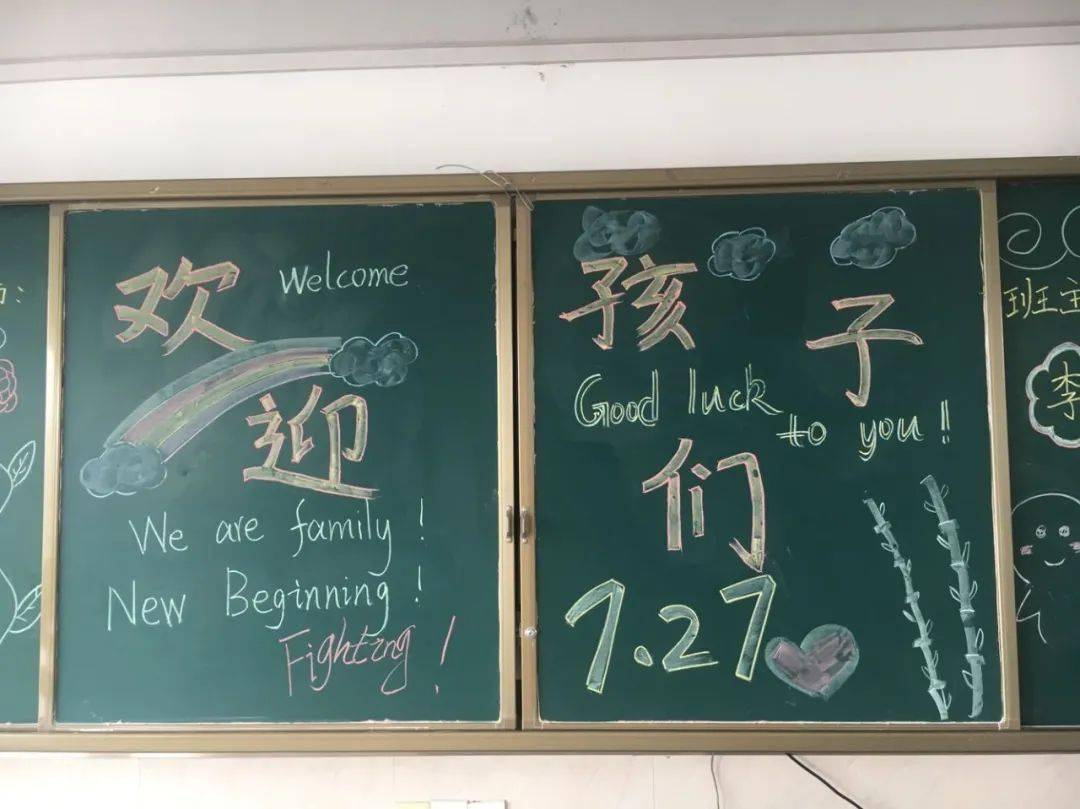 欢
Welcome
迎
We are family!
New Beginning!
Fighting!
孩子
Good luck to you!
们
7.27
班主
李